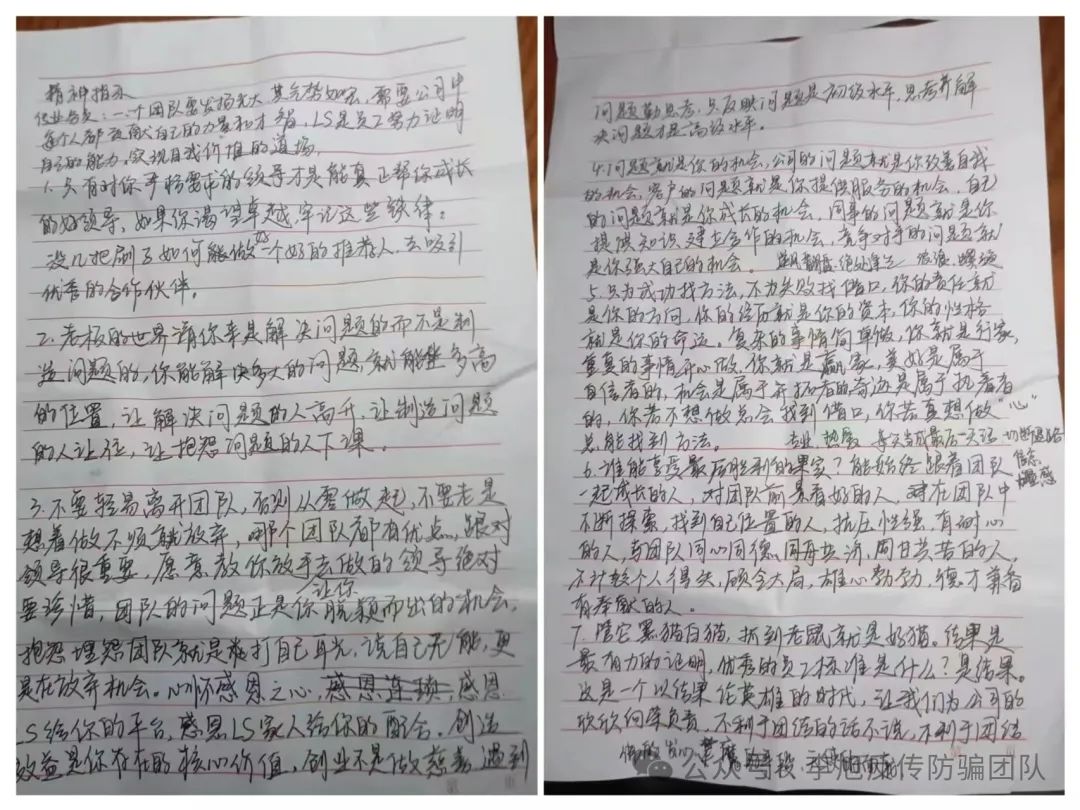 精神指示
伙业各员:一个团队要发扬光大 其气势如宏,需要公司中
每个人都贡献自己的力量和才智,LS是员工努力证明
自己的能力、实现自我价值的道场,
1.只有对你严格需求的领导才是能真正帮你成长
的好领导,如果你渴望卓越,牢记这些铁律:
没几把刷子如何能做一个好的推荐人,去吸引
优秀的合作伙伴。
2.老板的世界请你来是解决问题的而不是制
造问题的,你能解决多大的问题,就能坐多高
的位置,让解决问题的人高升,让制造问题
的人让位,让抱怨问题的人下课。
3.不要轻易离开团队,否则从零做起,不要老是
想着做不顺就放弃,哪个团队都有优点,跟对
领导很重要,愿意教你放手去做的领导绝对
要珍惜,团队的问题正是你让你脱颖而出的机会,
抱怨埋怨团队就是在打自己耳光,说自己无能,更
是在放弃机会。心怀感恩之心,感恩
LS给你的平台,感恩LS家人给你的配合。创造
效益是你存在的核心价值,创业不是做慈善,遇到
问题勤思考,只反映问题是初级水平,思考并解
决问题才是高级水平。
4.问题就是你的机会,公司的问题就是你改善自我
的机会,客户的问题就是你提供服务的机会,自己
的问题就是你成长的机会,同事的问题就是你
提供知识 建立合作的机会,竞争对手的问题就
是你强大自己的机会。
5.只为成功找方法,不为失败找借口,你的责任就
是你的方向,你的经历就是你的资本,你的性格
就是你的命运。复杂的事情简单做,你就是行家,
重复的事情开心做,你就是赢家,美好是属于
自信者的,机会是属于开拓者的奇迹是属于执着者
的,你若不想做总会找到借口,你若真想做"心"
总能找到方法。 专业 热爱 每天当成最后一天活 切断退路
6.谁能享受最后胜利的果实?能始终跟着团队 信念
一起成长的人,对团队前景看好的人,在团队中
不断探索,找到自己位置的人,抗压性强,有耐心
的人,与团队同心同德,同舟共济,同甘共苦的人,
不计较个人得失,顾全大局,雄心勃勃,德才兼备
有奉献的人。
7.管它黑猫白猫,抓到老鼠就是好猫。结果是
最有力的证明,优秀的员工标准是什么?是结果。
这是一个以结果论英雄的时代,让我们为公司的
欣欣向荣负责,不利于团结的话不说,不利于团结
公众号 段李旭反传防骗团队